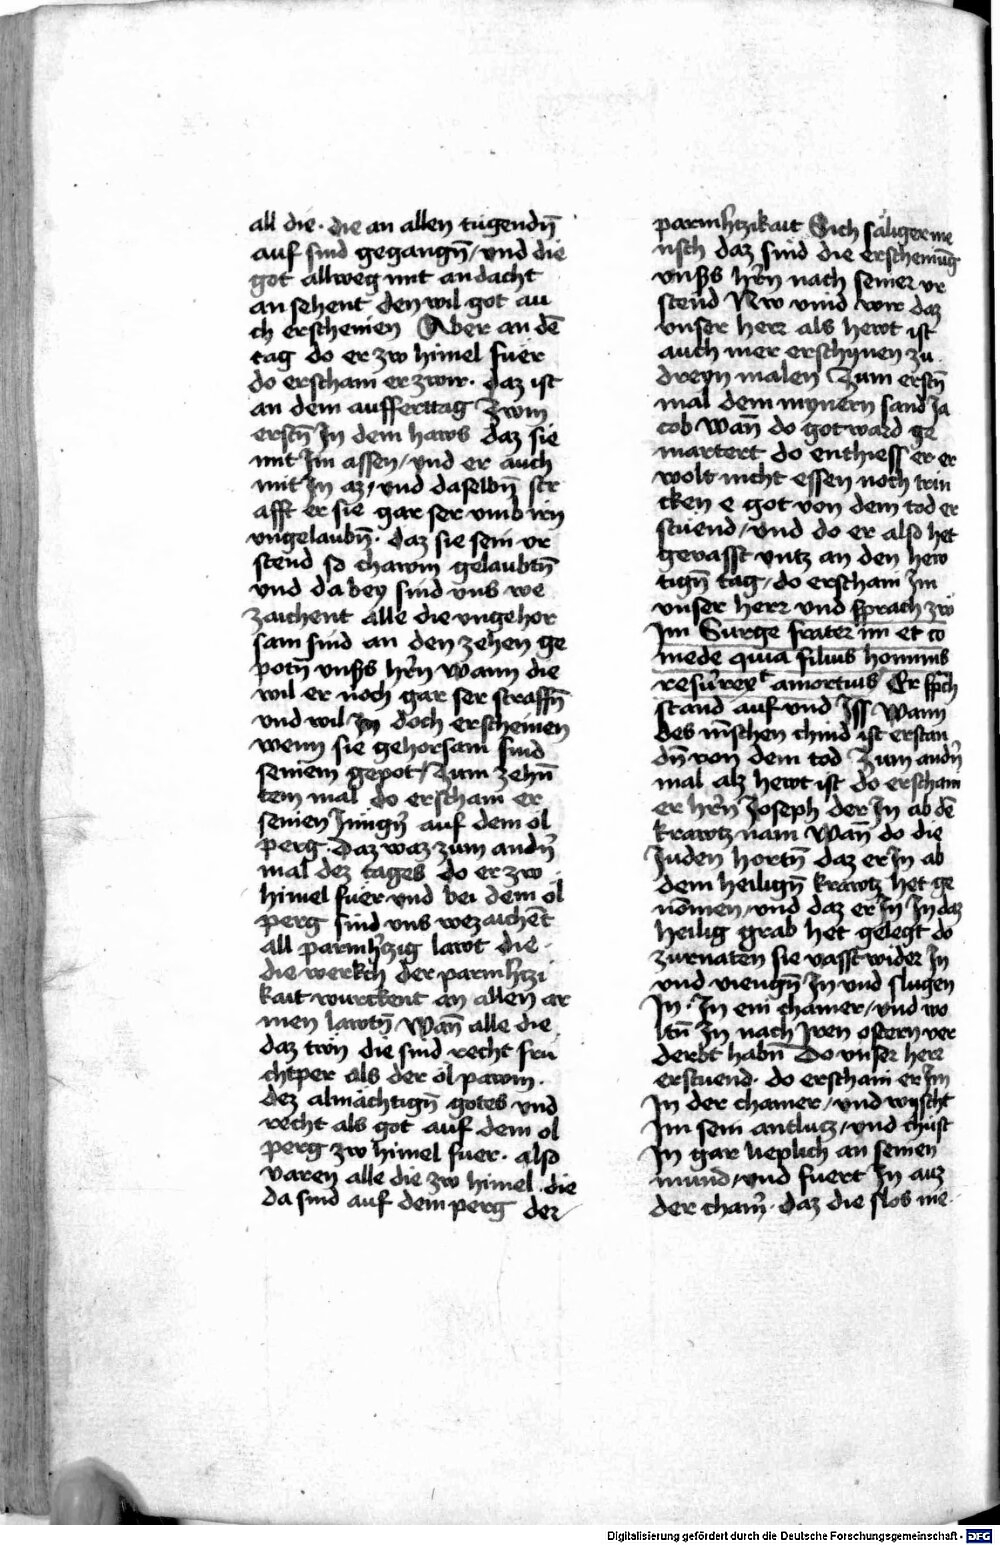 all die · die an allen tugendn̄
auf sind gegangn̄ / vnd die
got allweg mit andacht
an sehent den wil got au
ch erscheinen Aber an dē
tag do er zw himel fuer
do erscham er zwir · daz ist
an dem aufferttag Zwm
erstn̄ In dem haws daz sie
mit Im assen / vnd er auch
mit In az / vnd daselbn̄ str
afft er sie gar ser vmb irn
vngelaubn̄ · daz sie sein vr
stend so chawm gelaubtn̄
vnd da bey sind vns we
zaichent alle die vngehor
sam sind an den zehen ge
potn̄ vnsers hr̄n Wann die
wil er noch gar ser straffn̄
vnd wil In doch erscheinen
wenn sie gehorsam sind
seinem gepot / Zum zehn̄
tem mal do erscham er
seinen Jungn̄ auf dem ol
perg · Daz waz zum andn̄
mal dez tages do er zw
himel fuer vnd bei dem ol
perg sind vns wezaichēt
all parmh̄tzig lawt die ·
die werkch der parmh̄tzi
kait wurckent an allen ar
men lawtn̄ / Wan̄ alle die
daz twn̄ die sind recht fru
chtper als der ol pawm ·
dez almachtign̄ gotes vnd
recht als got auf dem ol
perg zw himel fuer · also
varen alle die zw himel · die
da sind auf dem perg der
parmh̄tzikait Sich säliger me
nsch daz sind die erscheinūg
vnsers hr̄n nach seiner vr
stend Nw vind wir daz
vnser herr als hewt ist
auch mer erschynen zu
dreyn malen Zum erstn̄
mal dem mynern sand Ja
cob Wan̄ do got ward ge
martert do enthiess er · er
wolt nicht essen noch trin
cken e got von dem tod er
stuend / vnd do er also het
gevasst vntz an den hew
tign̄ tag / do erscham Im
vnser herr vnd sprach zw
Im Surge frater mi et co
mede quia filius hominis
resurrexit a mortuis Er sprach
stand auf vnd Iss Wann
des mēschen chind ist erstan
dn̄ von dem tod Zum andn̄
mal alz hewt ist do erscham
er hr̄n Joseph der In ab dē
krawtz nam Wan̄ do die
Juden hortn̄ daz er In ab
dem heilign̄ krawtz het ge
nomen / vnd daz er In In daz
heilig grab het gelegt do
zurnaten sie vasst wider In
vnd viengn̄ In vnd slugen
In · In ein chamer / vnd wo
ltn̄ In nach Iren ostern ver
derbt habn̄ Do vnser herr
erstuend · do erscham er Im
In der chamer / vnd wyscht
Im sein antlutz / vnd chust
In gar lieplich an seinen
mund / vnd fuert In auz
der cham̄ · daz die slos nie ·
Digitalisierung gefördert durch die Deutsche Forschungsgemeinschaft - DFG